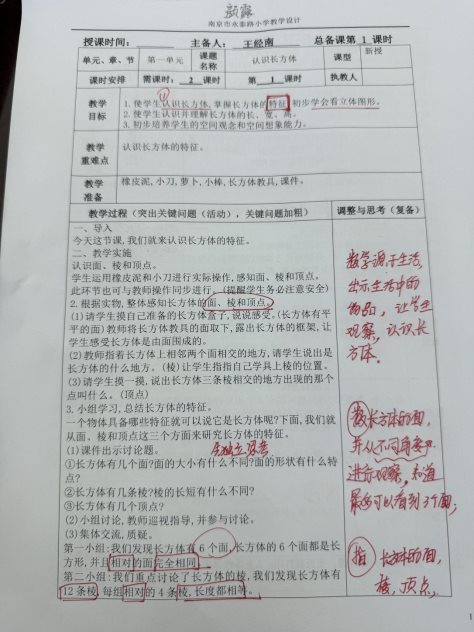 南京市永泰路小学教学设计
授课时间： 主备人： 王经南 总备课第 1 课时
单元、章、节 第一单元 课题名称 认识长方体 课型 新授
课时安排 需课时：2 课时 第 1 课时 执教人
教学目标
①
1.使学生认识长方体，掌握长方体的特征，初步学会看立体图形。
2.使学生认识并理解长方体的长、宽、高。
3.初步培养学生的空间观念和空间想象能力。
教学重难点
认识长方体的特征。
教学准备
橡皮泥，小刀，萝卜，小棒，长方体教具，课件。
教学过程（突出关键问题（活动），关键问题加粗） 调整与思考（复备）
一、导入
今天这节课，我们就来认识长方体的特征。
二、教学实施
认识面、棱和顶点。
学生运用橡皮泥和小刀进行实际操作，感知面、棱和顶点。
此环节也可与教师操作同步进行。（提醒学生务必注意安全）
2.根据实物，整体感知长方体的面、棱和顶点。
(1)请学生摸自己准备的长方体盒子，说说感受。(长方体有平
平的面)教师将长方体教具的面取下，露出长方体的框架，让
学生感受长方体是由面围成的。
(2)教师指着长方体上相邻两个面相交的地方，请学生说出是
长方体的什么地方。(棱)让学生指指自己学具上棱的位置。
(3)请学生摸一摸，说出长方体三条棱相交的地方出现的那个
点叫什么。(顶点)
3.小组学习，总结长方体的特征。
一个物体具备哪些特征就可以说它是长方体呢?下面，我们就
从面、棱和顶点这三个方面来研究长方体的特征。
(1)课件出示讨论题。
先独立思考
①长方体有几个面?面的大小有什么不同?面的形状有什么特
点?
②长方体有几条棱?棱的长短有什么不同?
③长方体有几个顶点?
(2)小组讨论，教师巡视指导，并参与讨论。
(3)集体交流，质疑。
第一小组:我们发现长方体有 6 个面，长方体的 6 个面都是长
方形，并且相对的面完全相同。
第二小组:我们重点讨论了长方体的棱，我们发现长方体有
12 条棱，每组相对的 4 条棱，长度都相等。
数学源于生活，
出示生活中的
物品，让学生
观察，认识长
方体．
数长方体的面，
并从不同角度
进行观察，知道
最多可以看到3个面；
指 长方体的面，
棱，顶点，
1